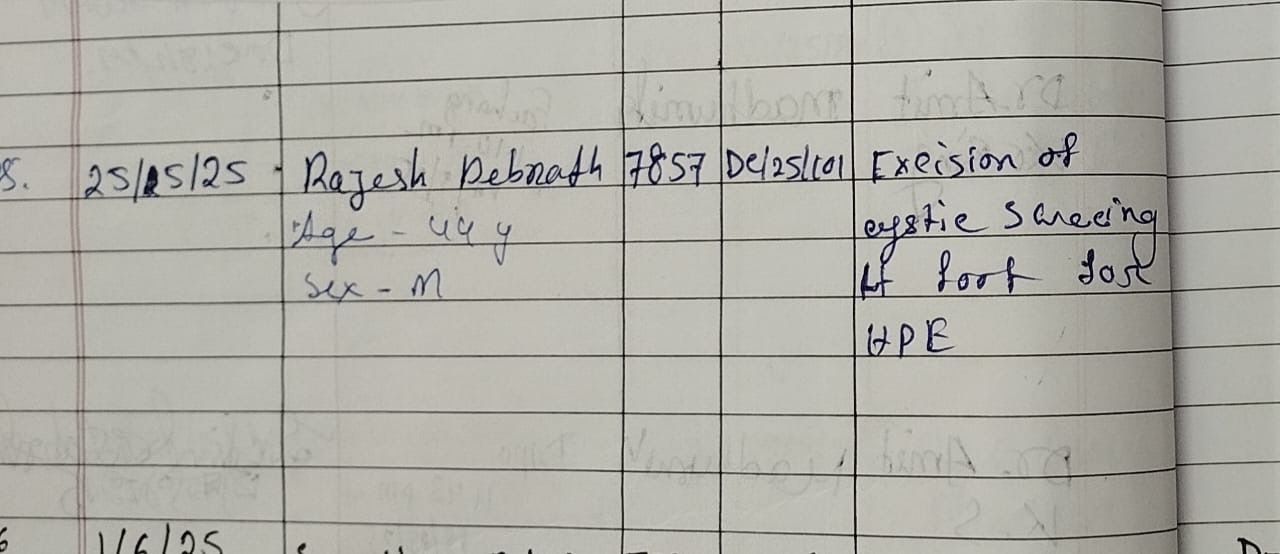 8. 25/05/25 Rajesh Debnath 7857 DC/25/101 Excision of
Age - 44 y cystic swelling
Sex - M Lt foot for
HPE
6 1/6/25